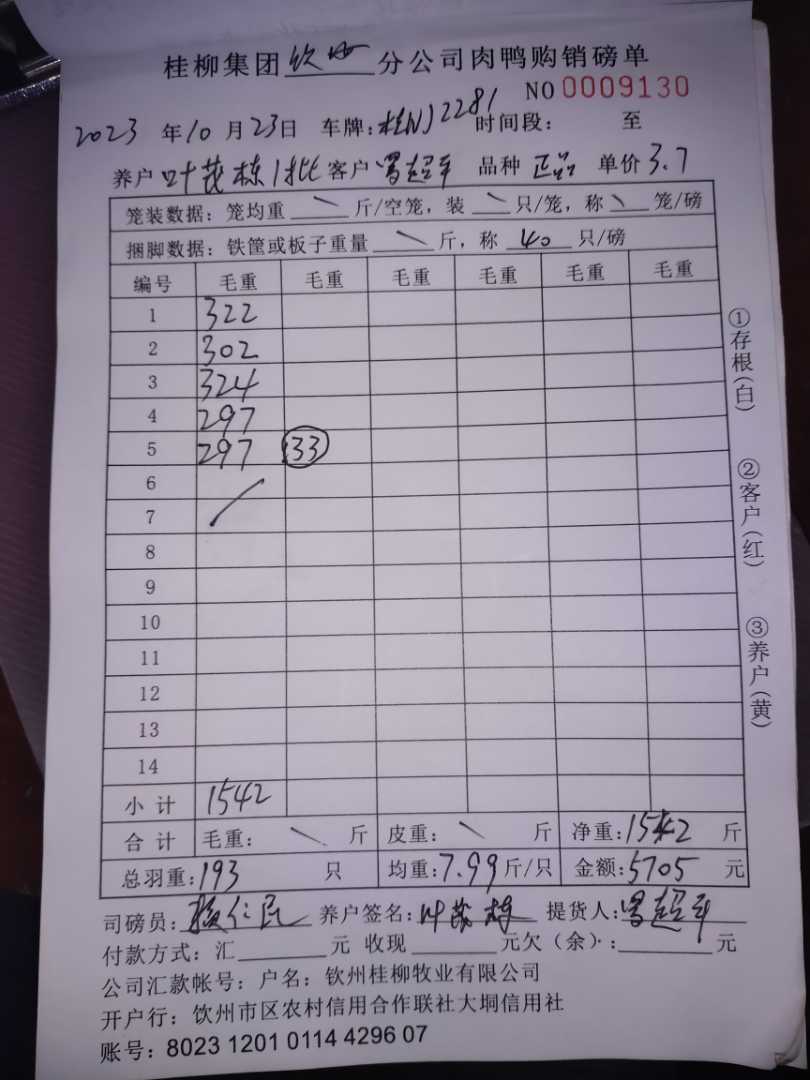 桂柳集团钦州分公司肉鸭购销磅单
NO 0009130
2023 年 10 月 23 日 车牌：桂NJ2281 时间段： 至
养户 叶茂栋1批 客户 罗超平 品种 正品 单价 3.7
笼装数据：笼均重 \ 斤/空笼，装 \ 只/笼，称 \ 笼/磅
捆脚数据：铁筐或板子重量 \ 斤，称 40 只/磅
编号 毛重 毛重 毛重 毛重 毛重 毛重
1 322
2 302
3 324
4 297
5 297 33
6
7
8
9
10
11
12
13
14
小 计 1542
合 计 毛重： \ 斤 皮重： \ 斤 净重：1542 斤
总羽重：193 只 均重：7.99 斤/只 金额：5705 元
司磅员： 养户签名：叶茂栋 提货人：罗超平
付款方式：汇______元 收现______元欠（余）：______元
公司汇款帐号：户名：钦州桂柳牧业有限公司
开户行：钦州市区农村信用合作联社大垌信用社
账号：8023 1201 0114 4296 07
①存根（白）
②客户（红）
③养户（黄）